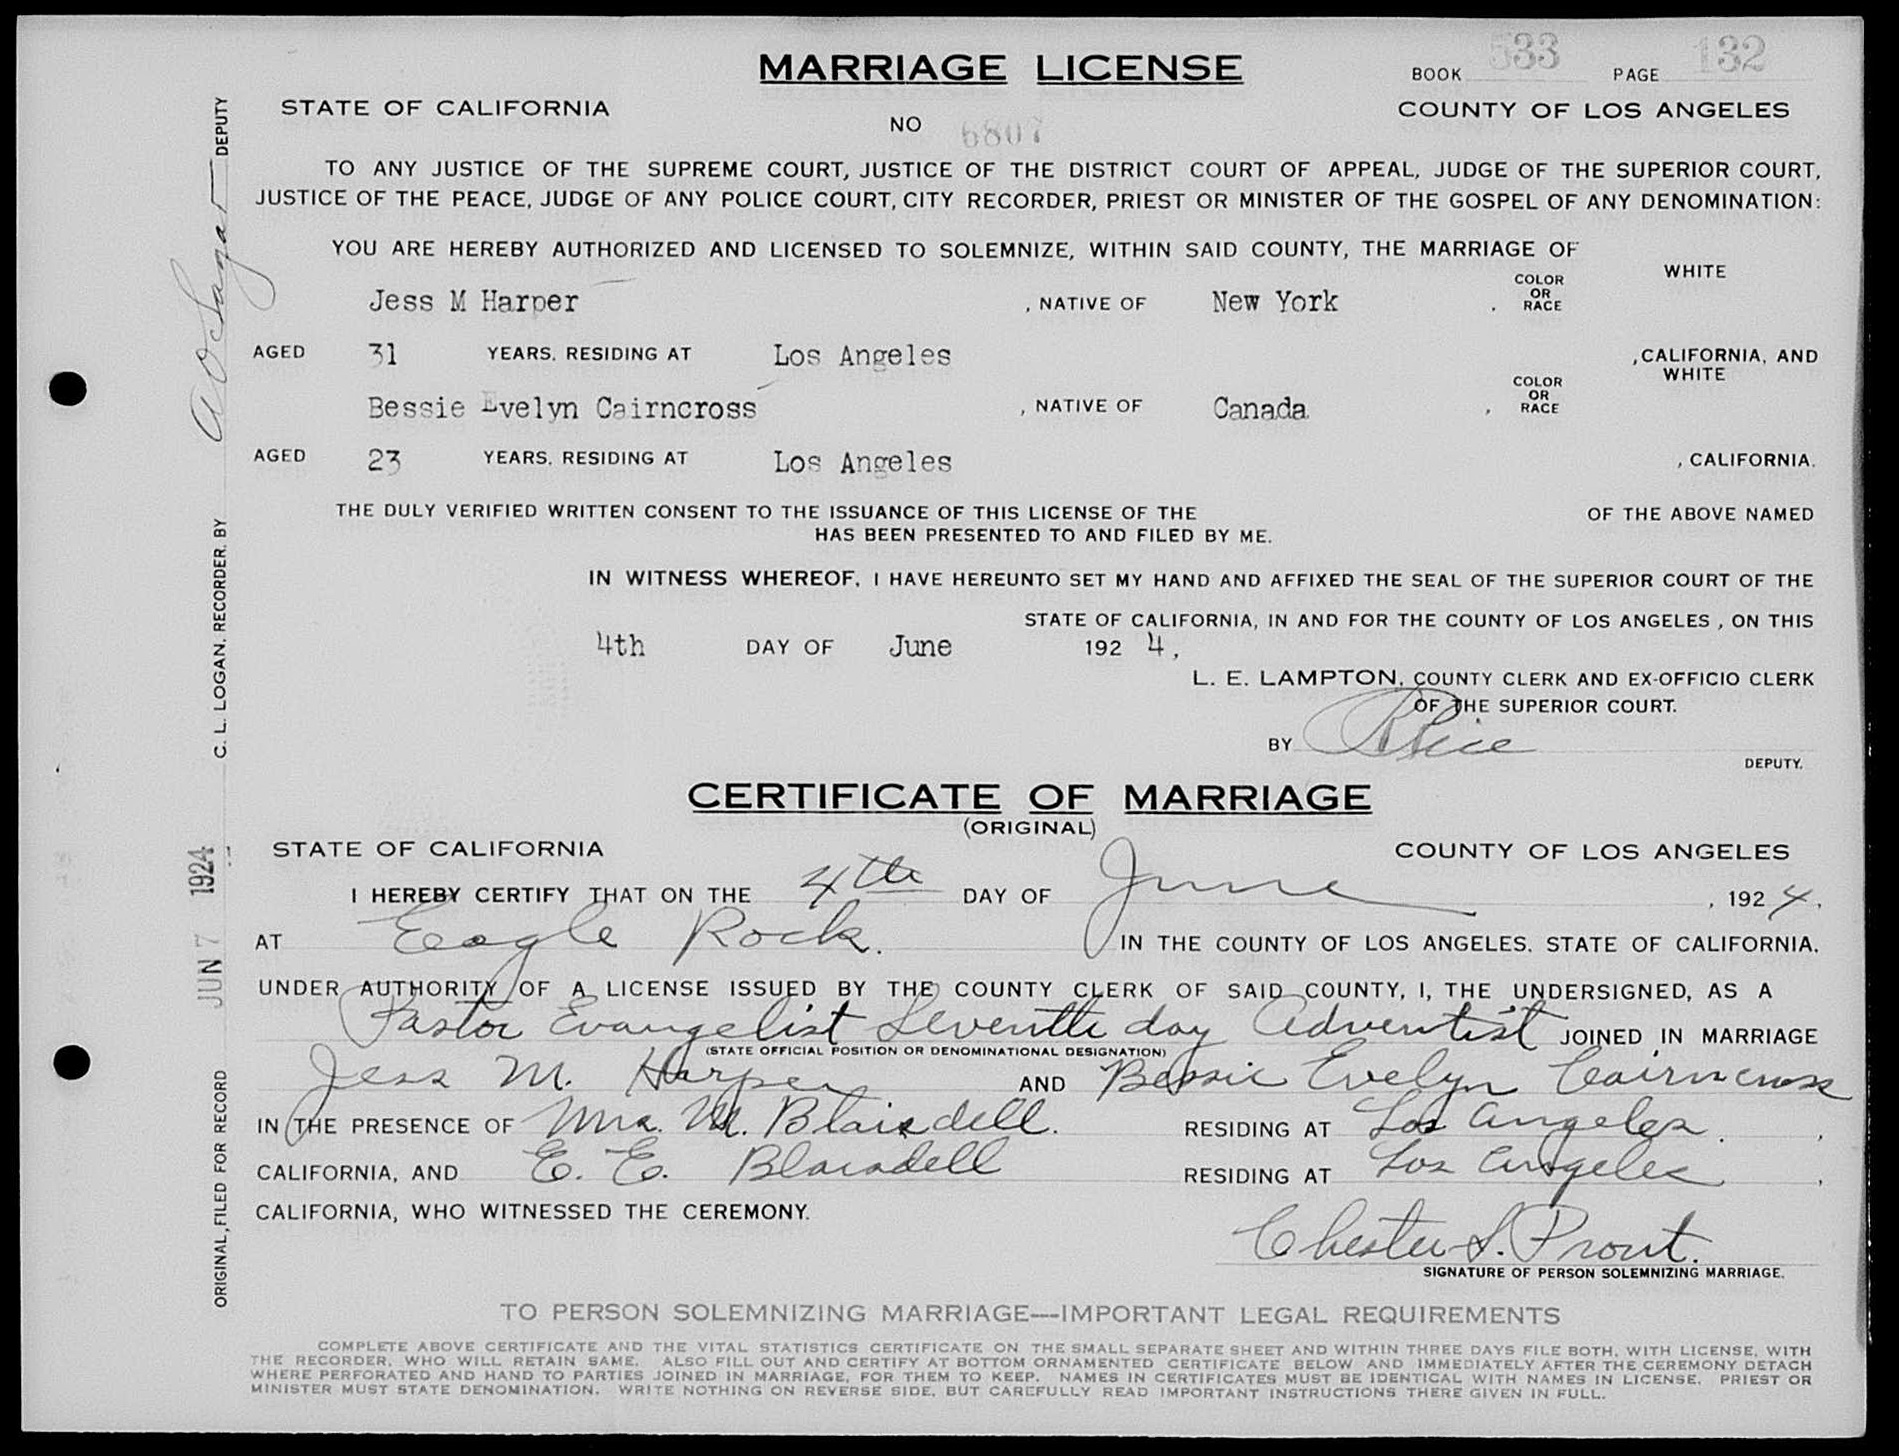 MARRIAGE LICENSE
BOOK 533 PAGE 132
STATE OF CALIFORNIA
NO 6807
COUNTY OF LOS ANGELES
TO ANY JUSTICE OF THE SUPREME COURT, JUSTICE OF THE DISTRICT COURT OF APPEAL, JUDGE OF THE SUPERIOR COURT,
JUSTICE OF THE PEACE, JUDGE OF ANY POLICE COURT, CITY RECORDER, PRIEST OR MINISTER OF THE GOSPEL OF ANY DENOMINATION:
YOU ARE HEREBY AUTHORIZED AND LICENSED TO SOLEMNIZE, WITHIN SAID COUNTY, THE MARRIAGE OF
Jess M Harper , NATIVE OF New York , COLOR OR RACE WHITE
AGED 31 YEARS, RESIDING AT Los Angeles , CALIFORNIA, AND
Bessie Evelyn Cairncross , NATIVE OF Canada , COLOR OR RACE WHITE
AGED 23 YEARS, RESIDING AT Los Angeles , CALIFORNIA.
THE DULY VERIFIED WRITTEN CONSENT TO THE ISSUANCE OF THIS LICENSE OF THE OF THE ABOVE NAMED
HAS BEEN PRESENTED TO AND FILED BY ME.
IN WITNESS WHEREOF, I HAVE HEREUNTO SET MY HAND AND AFFIXED THE SEAL OF THE SUPERIOR COURT OF THE
STATE OF CALIFORNIA, IN AND FOR THE COUNTY OF LOS ANGELES , ON THIS
4th DAY OF June 192 4,
L. E. LAMPTON, COUNTY CLERK AND EX-OFFICIO CLERK
OF THE SUPERIOR COURT.
BY Rice
DEPUTY.
CERTIFICATE OF MARRIAGE
(ORIGINAL)
STATE OF CALIFORNIA
COUNTY OF LOS ANGELES
I HEREBY CERTIFY THAT ON THE 4th DAY OF June , 192 4.
AT Eagle Rock. IN THE COUNTY OF LOS ANGELES, STATE OF CALIFORNIA,
UNDER AUTHORITY OF A LICENSE ISSUED BY THE COUNTY CLERK OF SAID COUNTY, I, THE UNDERSIGNED, AS A
Pastor Evangelist Seventh day Adventist JOINED IN MARRIAGE
(STATE OFFICIAL POSITION OR DENOMINATIONAL DESIGNATION)
Jess M. Harper AND Bessie Evelyn Cairncross
IN THE PRESENCE OF Mrs. M. Blaisdell. RESIDING AT Los Angeles.,
CALIFORNIA, AND E. E. Blaisdell RESIDING AT Los Angeles,
CALIFORNIA, WHO WITNESSED THE CEREMONY.
Chester S. Prout.
SIGNATURE OF PERSON SOLEMNIZING MARRIAGE.
TO PERSON SOLEMNIZING MARRIAGE—IMPORTANT LEGAL REQUIREMENTS
COMPLETE ABOVE CERTIFICATE AND THE VITAL STATISTICS CERTIFICATE ON THE SMALL SEPARATE SHEET AND WITHIN THREE DAYS FILE BOTH, WITH LICENSE, WITH
THE RECORDER, WHO WILL RETAIN SAME. ALSO FILL OUT AND CERTIFY AT BOTTOM ORNAMENTED CERTIFICATE BELOW AND IMMEDIATELY AFTER THE CEREMONY DETACH
WHERE PERFORATED AND HAND TO PARTIES JOINED IN MARRIAGE, FOR THEM TO KEEP. NAMES IN CERTIFICATES MUST BE IDENTICAL WITH NAMES IN LICENSE. PRIEST OR
MINISTER MUST STATE DENOMINATION. WRITE NOTHING ON REVERSE SIDE, BUT CAREFULLY READ IMPORTANT INSTRUCTIONS THERE GIVEN IN FULL.
ORIGINAL, FILED FOR RECORD JUN 7 1924 C. L. LOGAN, RECORDER, BY DEPUTY